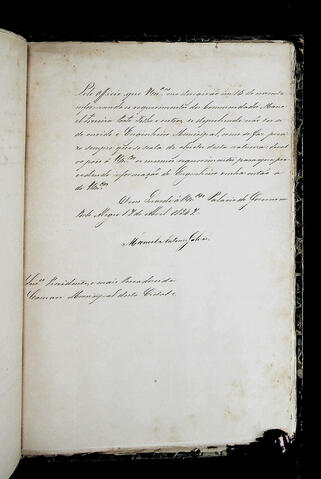 Pelo officio que Vm.ces me dirigirão em 15 do corrente
informando o requerimento do Commendador Mano
el Ferreira Porto Filho e outros, se deprehende não ter si
do ouvido o Engenheiro Municipal, como se faz preci
so sempre que se trata de objectos desta natureza: devol
vo pois a Vm.ces os mesmos requerimentos para que pre
cedendo informação do Engenheiro sobre
de Vm.ces
Deos Guarde a Vm.ces Palacio do Governo em
Porto Alegre 17 de Abril 1847.
Manoel Antonio Galvão
Snr.es Presidente, e mais Vereadores da
Camara Municipal desta Cidade.